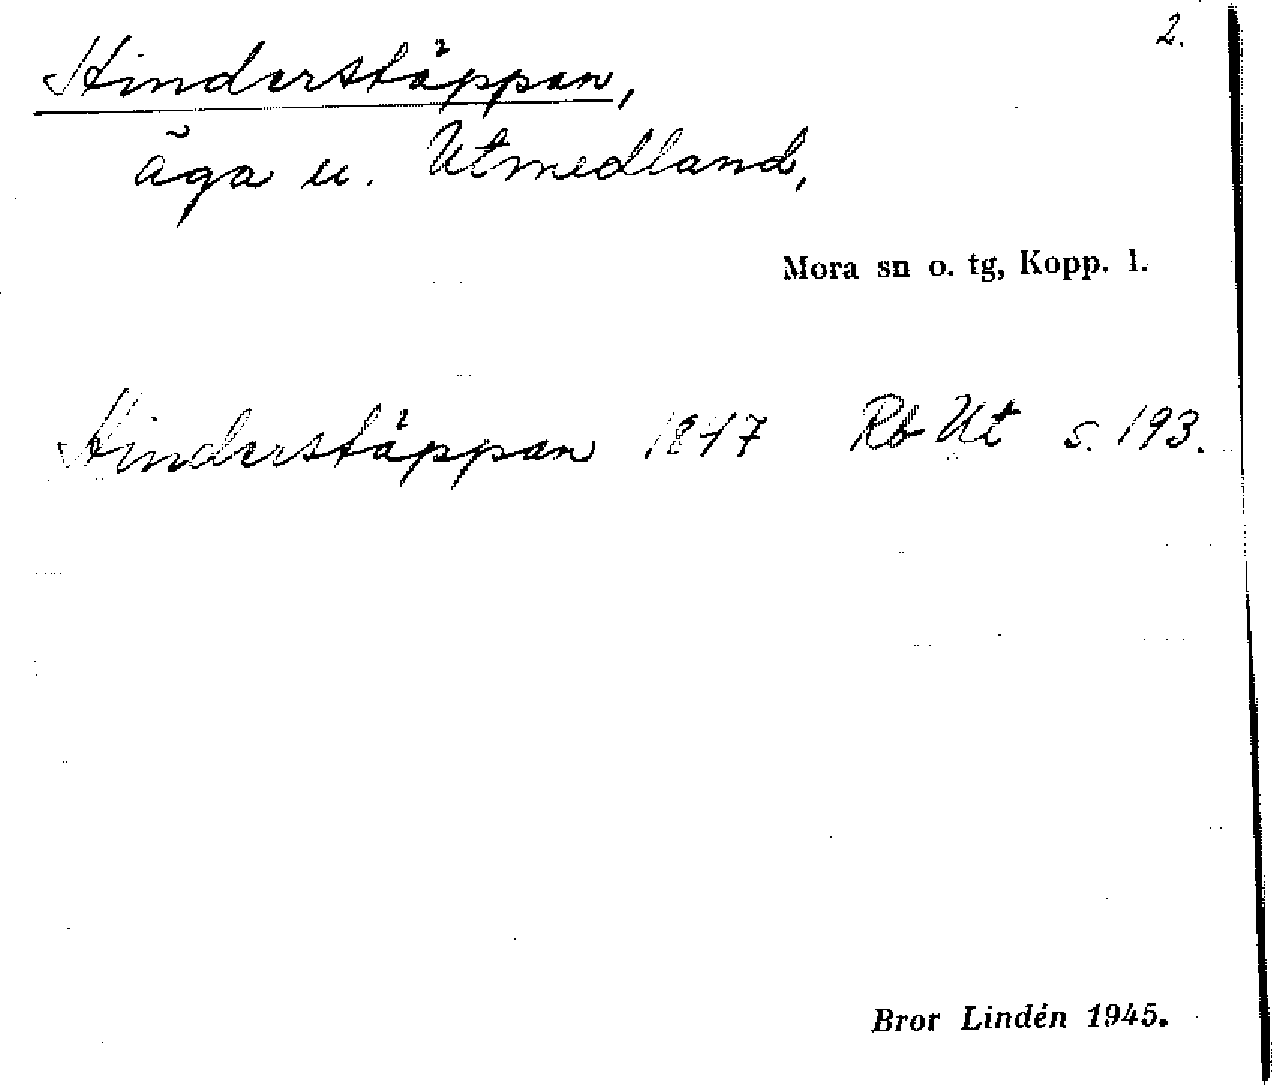 2.
Hinderstäppan,
äga u. Utmedland,
Mora sn o. tg, Kopp. l.
Hinderstäppan 1847 Rb Ut s. 193.
Bror Lindén 1945.